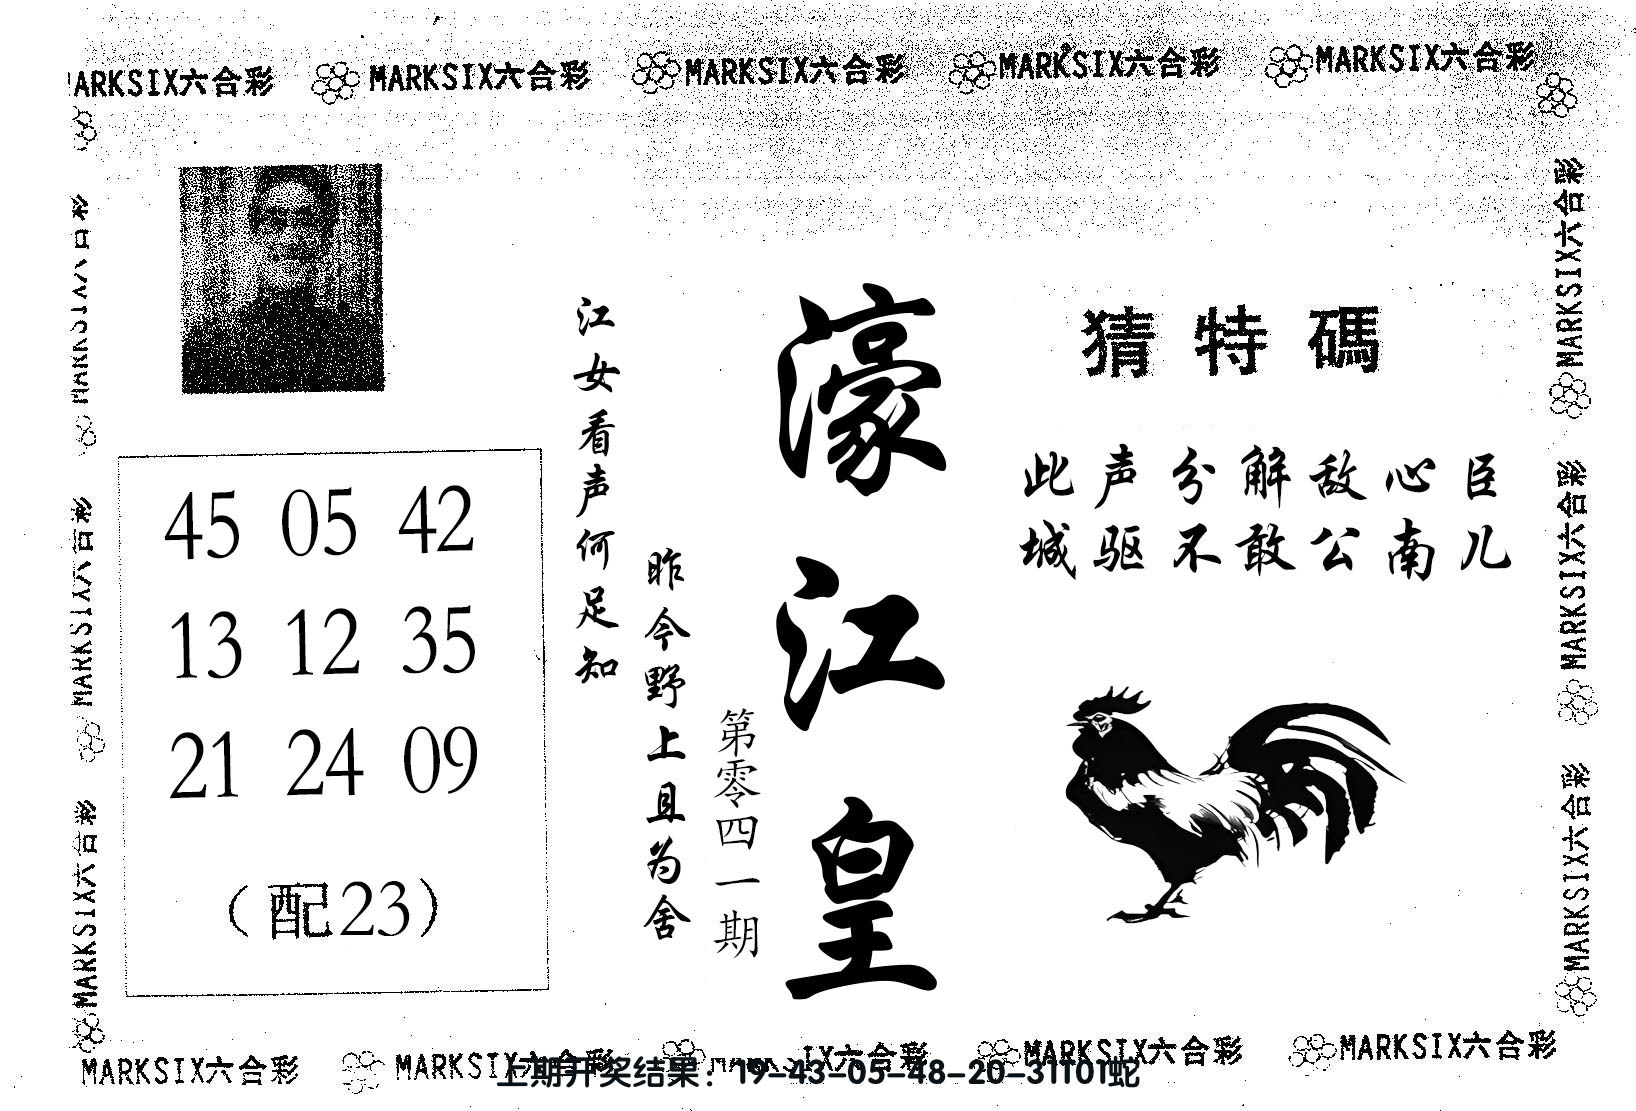 MARKSIX六合彩 MARKSIX六合彩 MARKSIX六合彩 MARKSIX六合彩 MARKSIX六合彩
MARKSIX六合彩
MARKSIX六合彩
MARKSIX六合彩
猜特碼
此声分解敌心臣
城驱不敢公南儿
濠江皇
第零四一期
昨今野上且为舍
江女看声何足知
45 05 42
13 12 35
21 24 09
（配23）
MARKSIX六合彩
MARKSIX六合彩
MARKSIX六合彩
MARKSIX六合彩 MARKSIX六合彩 IX六合彩 MARKSIX六合彩 MARKSIX六合彩
上期开奖结果：19-43-05-48-20-31T01蛇